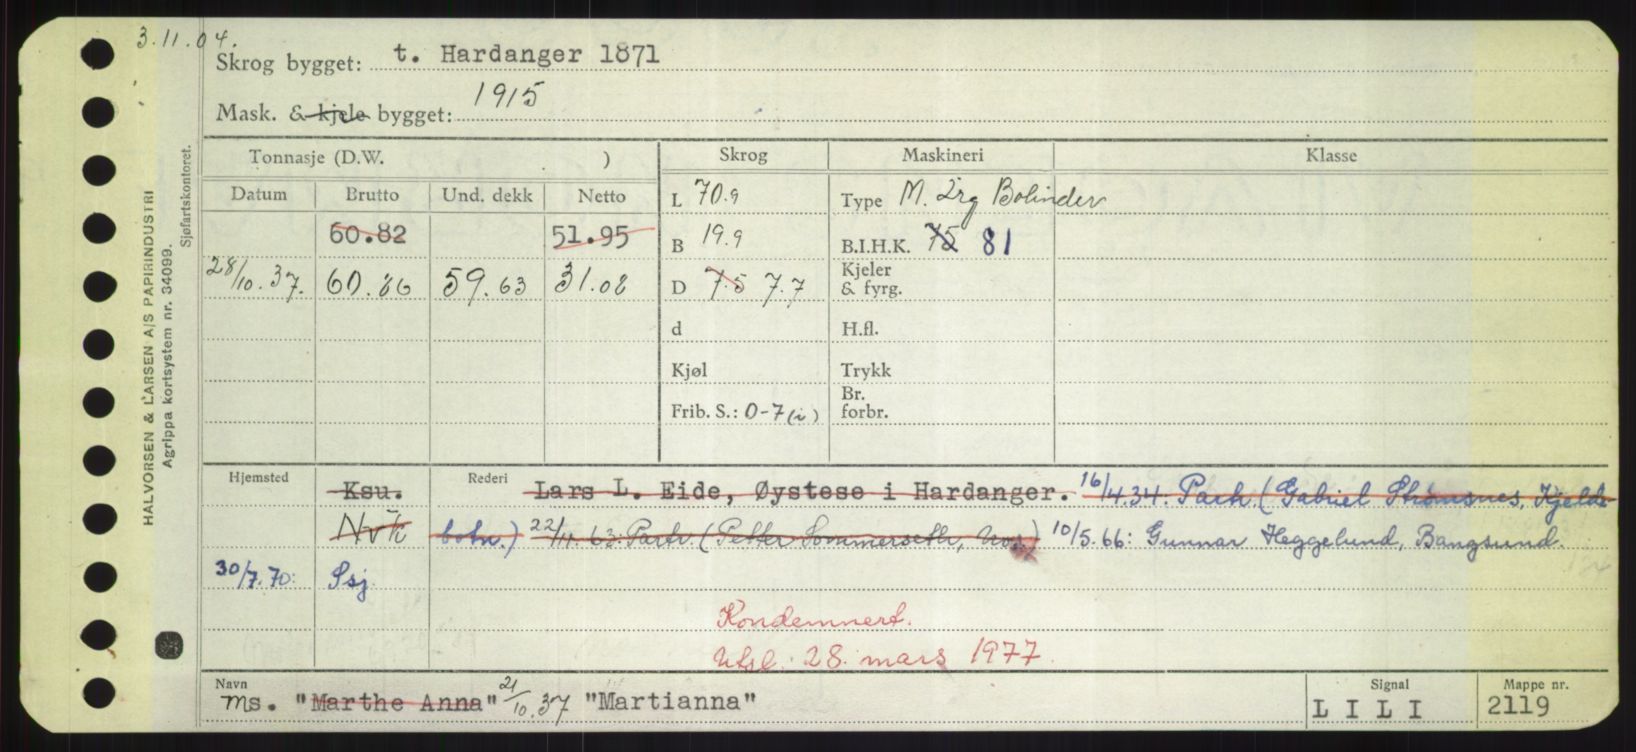 3.11.04.
Skrog bygget: t. Hardanger 1871
Mask. & kjele bygget: 1915
Tonnasje (D.W. ) Skrog Maskineri Klasse
Datum Brutto Und. dekk Netto
L 70.9 Type M. 2rg Bolinder
60.82 51.95
B 19.9 B.I.H.K. 75 81
28/10.37. 60.86 59.63 31.08
D 7.5 7.7 Kjeler & fyrg.
d H.fl.
Kjøl Trykk
Frib. S.: 0-7 (i) Br. forbr.
Hjemsted Ksu. Rederi Lars L. Eide, Øystese i Hardanger. 16/4.34: Partr. (Gabriel Strømsnes, Kjelds-
Nvk botn.) 22/4.63: Partr. (Petter Sommerseth, Nvs.) 10/5.66: Gunnar Heggelund, Bangsund.
30/7.70: Ssj.
Kondemnert.
Utsl. 28. mars 1977.
Navn Signal Mappe nr.
ms. "Marthe Anna" 21/10.37 "Martianna" L I L I 2119
HALVORSEN & LARSEN A/S PAPIRINDUSTRI
Agrippa kortsystem nr. 34099.
Sjøfartskontoret.